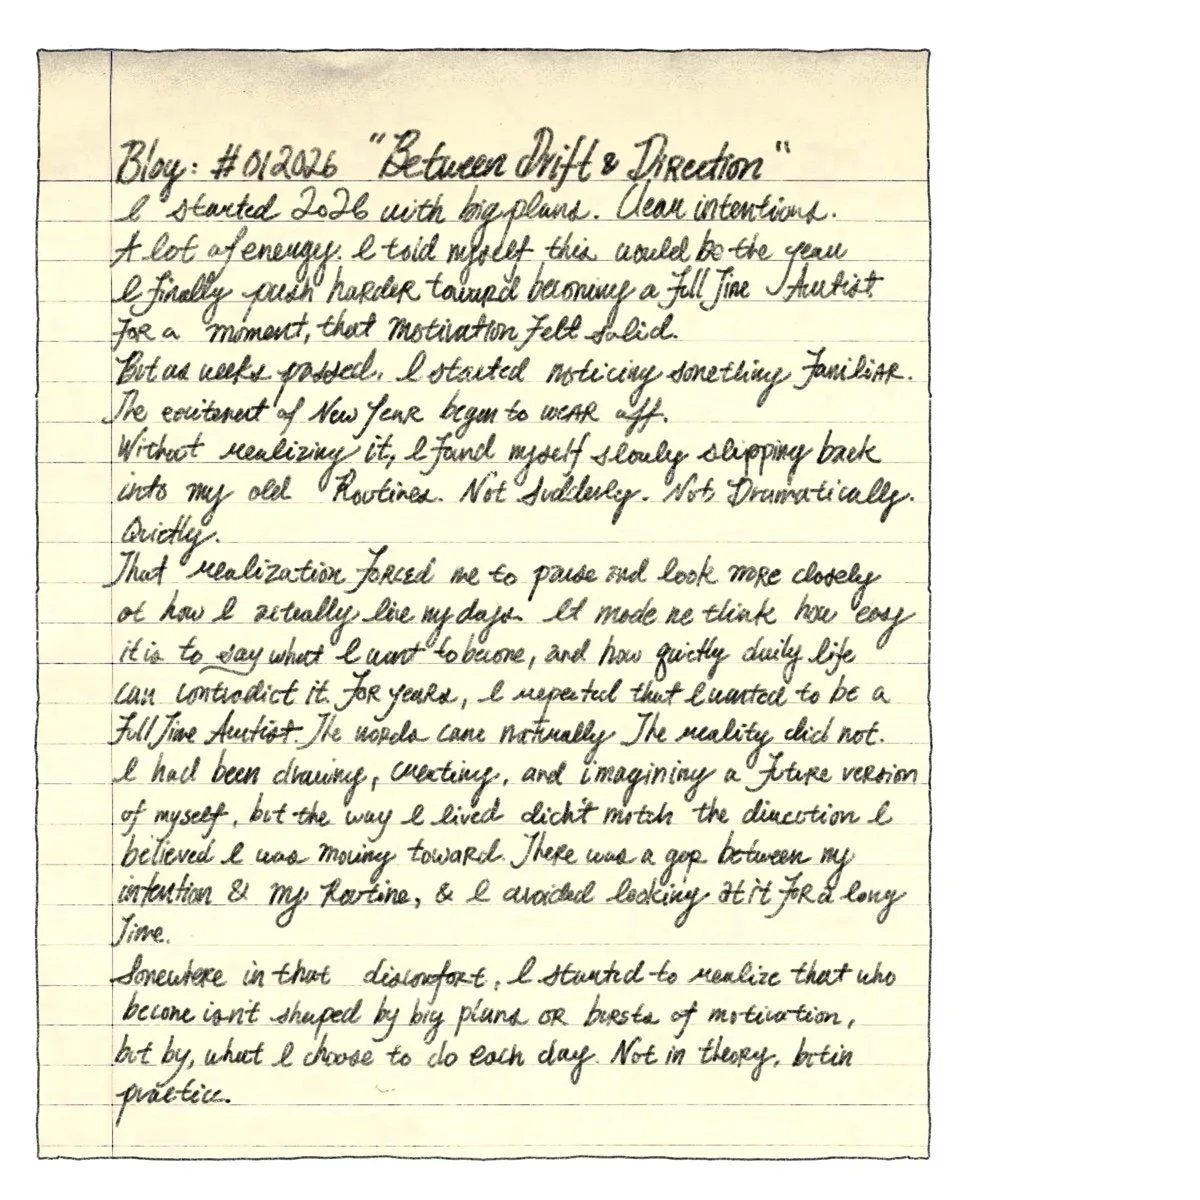 Blog: #012026 "Between Drift & Direction"
I started 2026 with big plans. Clear intentions.
A lot of energy. I told myself this would be the year
I finally push harder toward becoming a Full Time Artist.
For a moment, that motivation felt solid.
But as weeks passed, I started noticing something familiar.
The excitement of New Year began to wear off.
Without realizing it, I found myself slowly slipping back
into my old Routines. Not suddenly. Not Dramatically.
Quietly.
That realization forced me to pause and look more closely
at how I actually live my days. It made me think how easy
it is to say what I want to become, and how quietly daily life
can contradict it. For years, I repeated that I wanted to be a
Full Time Artist. The words came naturally The reality did not.
I had been drawing, creating, and imagining a future version
of myself, but the way I lived didn't match the direction I
believed I was moving toward. There was a gap between my
intention & my Routine, & I avoided looking at it for a long
Time.
Somewhere in that discomfort, I started to realize that who
become isn't shaped by big plans or bursts of motivation,
but by, what I choose to do each day. Not in theory, but in
practice.